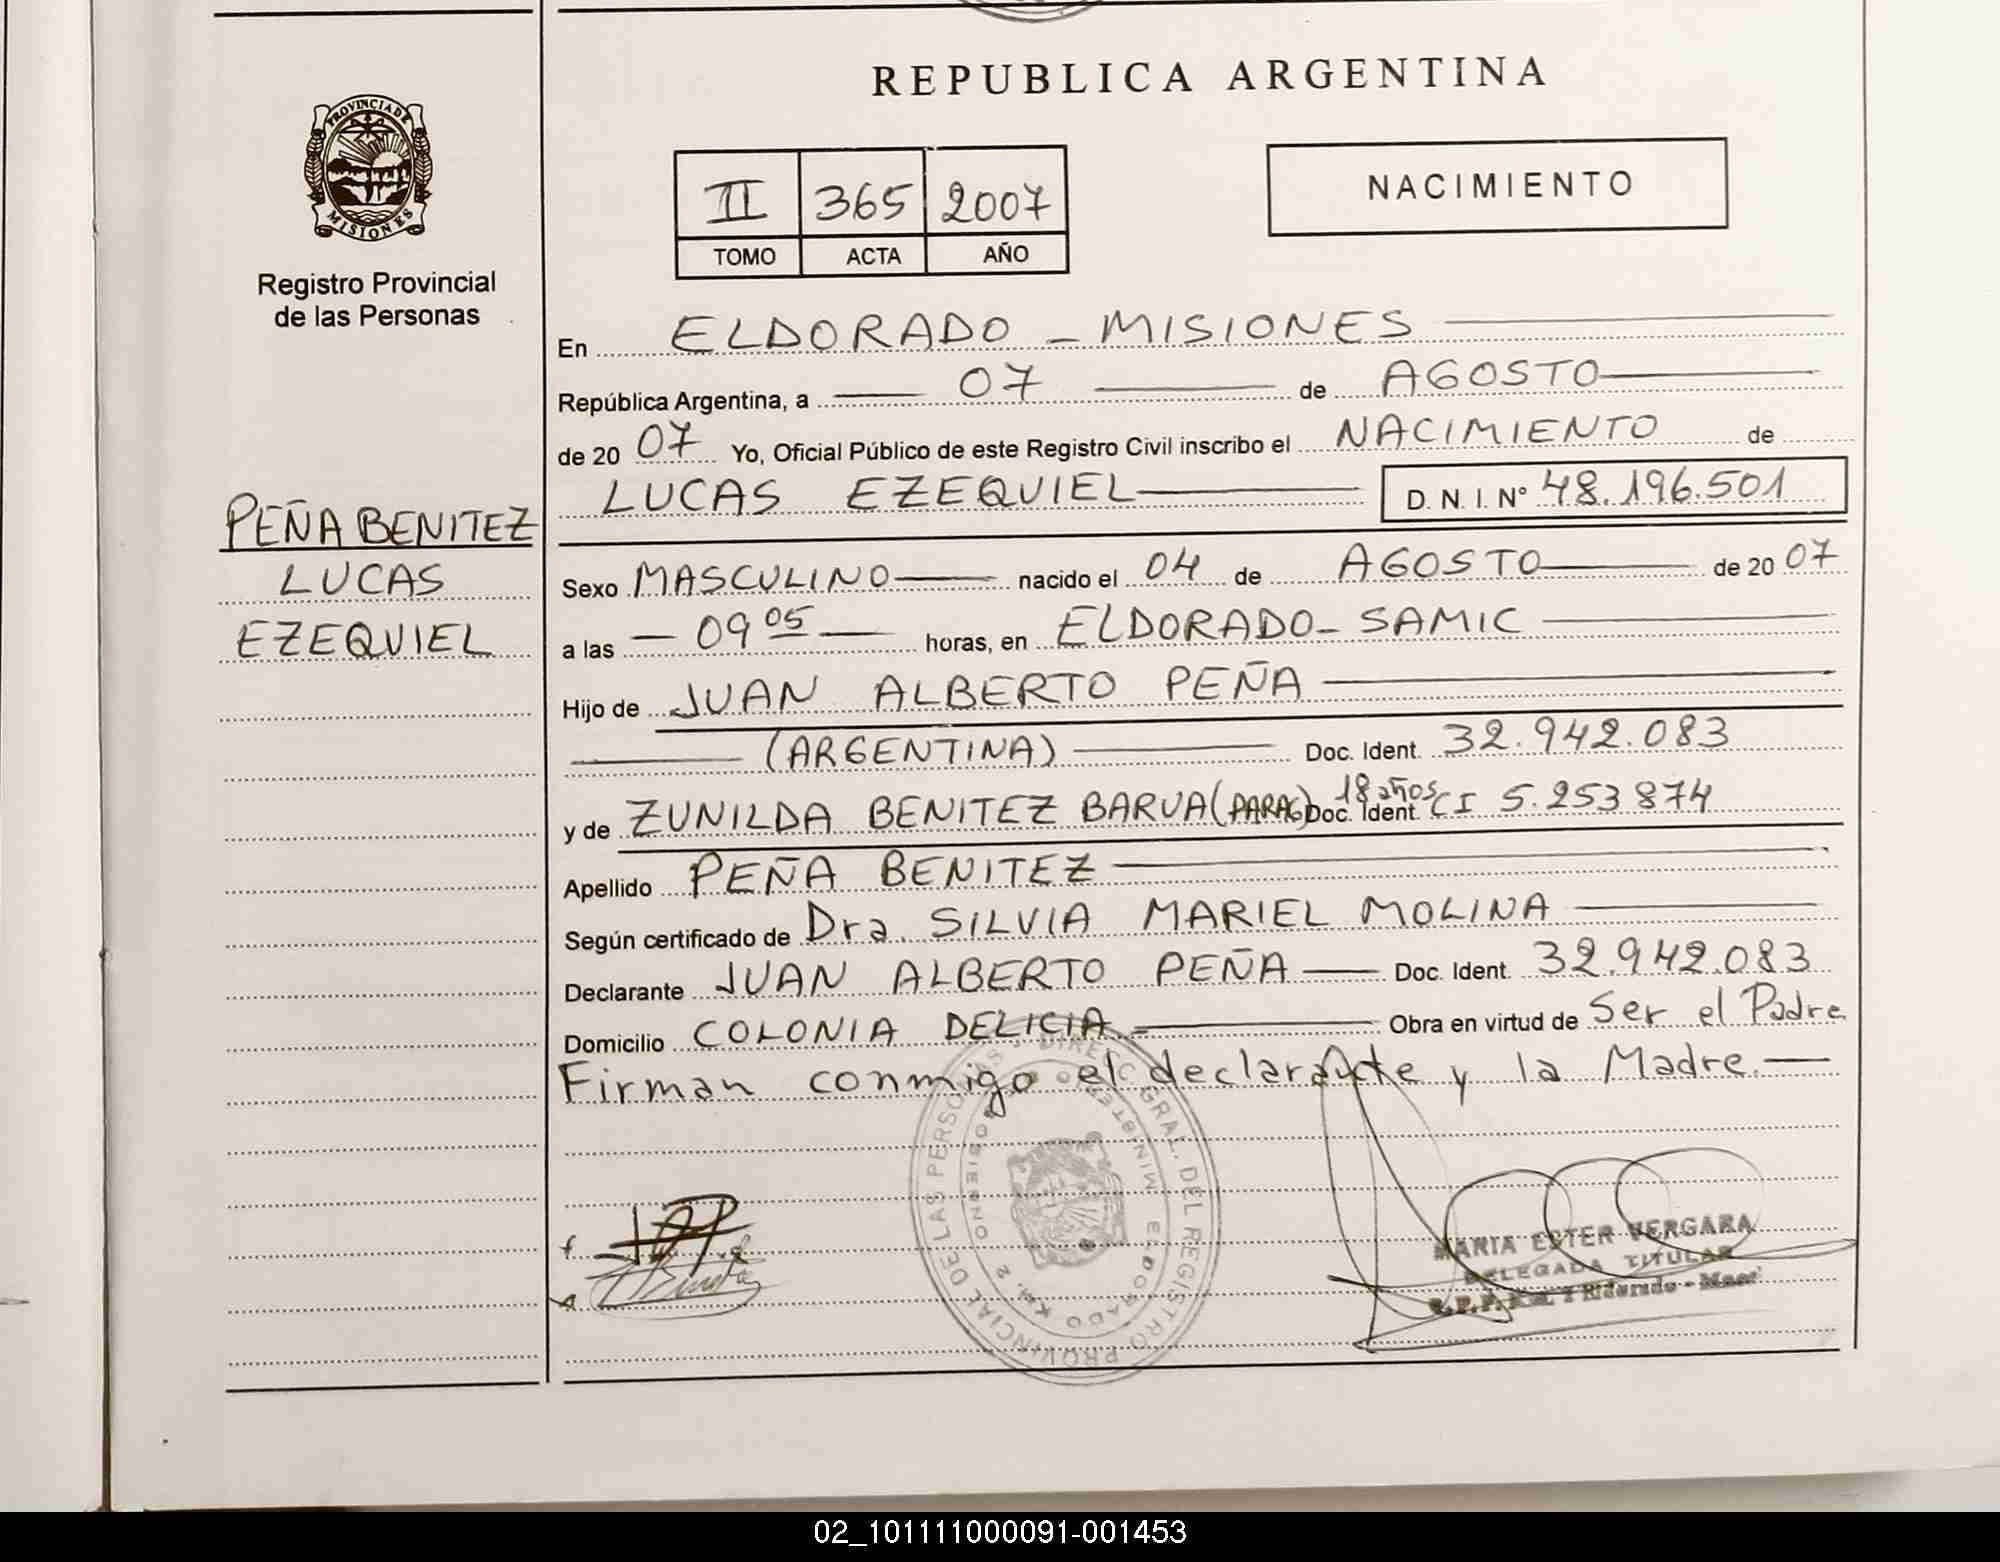 REPUBLICA ARGENTINA
PROVINCIA DE
MISIONES
Registro Provincial
de las Personas
II 365 2007
TOMO ACTA AÑO
NACIMIENTO
En ELDORADO - MISIONES
República Argentina, a 07 de AGOSTO
de 20 07 Yo, Oficial Público de este Registro Civil inscribo el NACIMIENTO de
LUCAS EZEQUIEL D. N. I. N° 48.196.501
PEÑA BENITEZ
LUCAS
EZEQUIEL
Sexo MASCULINO nacido el 04 de AGOSTO de 20 07
a las 09 05 horas, en ELDORADO - SAMIC
Hijo de JUAN ALBERTO PEÑA
(ARGENTINA) Doc. Ident. 32.942.083
y de ZUNILDA BENITEZ BARUA (PARAG) 18 años Doc. Ident. CI 5.253874
Apellido PEÑA BENITEZ
Según certificado de Dra. SILVIA MARIEL MOLINA
Declarante JUAN ALBERTO PEÑA Doc. Ident. 32.942.083
Domicilio COLONIA DELICIA Obra en virtud de Ser el Padre
Firman conmigo el declarante y la Madre.
DIREC. GRAL. DEL REGISTRO PROVINCIAL DE LAS PERSONAS
MINISTERIO DE GOBIERNO
ELDORADO KM. 2
MARIA ESTER VERGARA
DELEGADA TITULAR
Eldorado
02_101111000091-001453